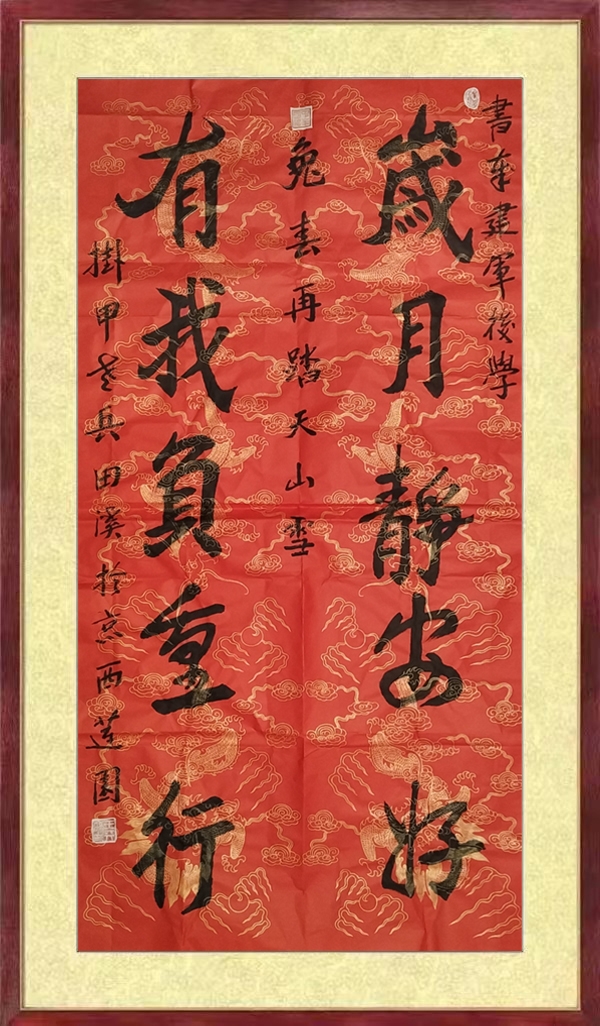 書奉建軍後學
歲月靜安好
兔春再踏天山雪
有我負重行
掛甲老兵田溪扵京西蓮園